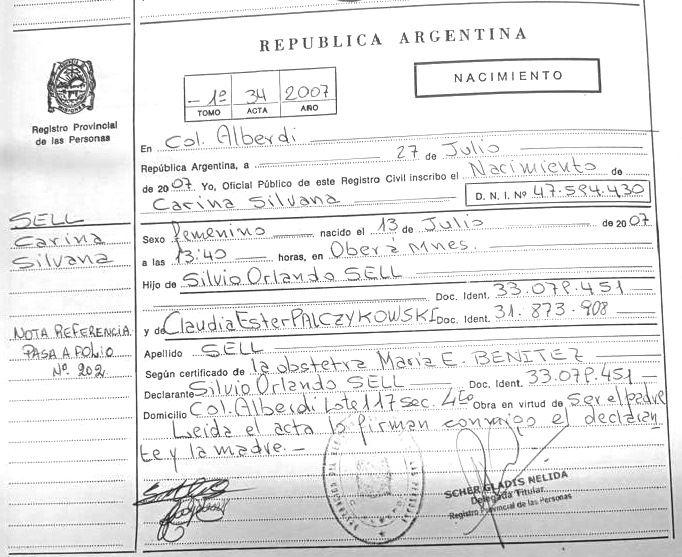 REPUBLICA ARGENTINA
NACIMIENTO
- 1º 34 2007
TOMO ACTA AÑO
Registro Provincial
de las Personas
En Col. Alberdi
República Argentina, a 27 de Julio
de 2007 Yo, Oficial Público de este Registro Civil inscribo el Nacimiento de
Carina Silvana D. N. I. Nº 47.594.430
SELL
Carina
Silvana
Sexo femenino nacido el 13 de Julio de 2007
a las 13:40 horas, en Oberá Mnes.
Hijo de Silvio Orlando SELL
Doc. Ident. 33.078.451
y de Claudia Ester PALCZYKOWSKI Doc. Ident. 31.873.908
NOTA REFERENCIA
PASA A FOLIO
Nº 202
Apellido SELL
Según certificado de la obstetra Maria E. BENITEZ
Declarante Silvio Orlando SELL Doc. Ident. 33.078.451 -
Domicilio Col. Alberdi Lote 117 sec. 4to Obra en virtud de ser el padre
Leida el acta la firman conmigo el declaran
te y la madre. -
SCHER GLADIS NELIDA
Delegada Titular
Registro Provincial de las Personas